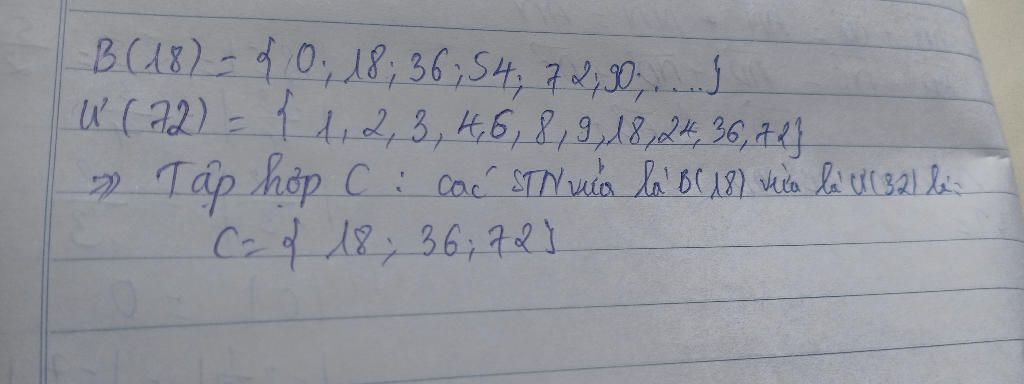 B(18) = { 0; 18; 36; 54; 72; 90; ....}
Ư(72) = { 1, 2, 3, 4, 6, 8, 9, 18, 24, 36, 72}
=> Tập hợp C : các STN vừa là B(18) vừa là Ư(32) là:
C = { 18; 36; 72}